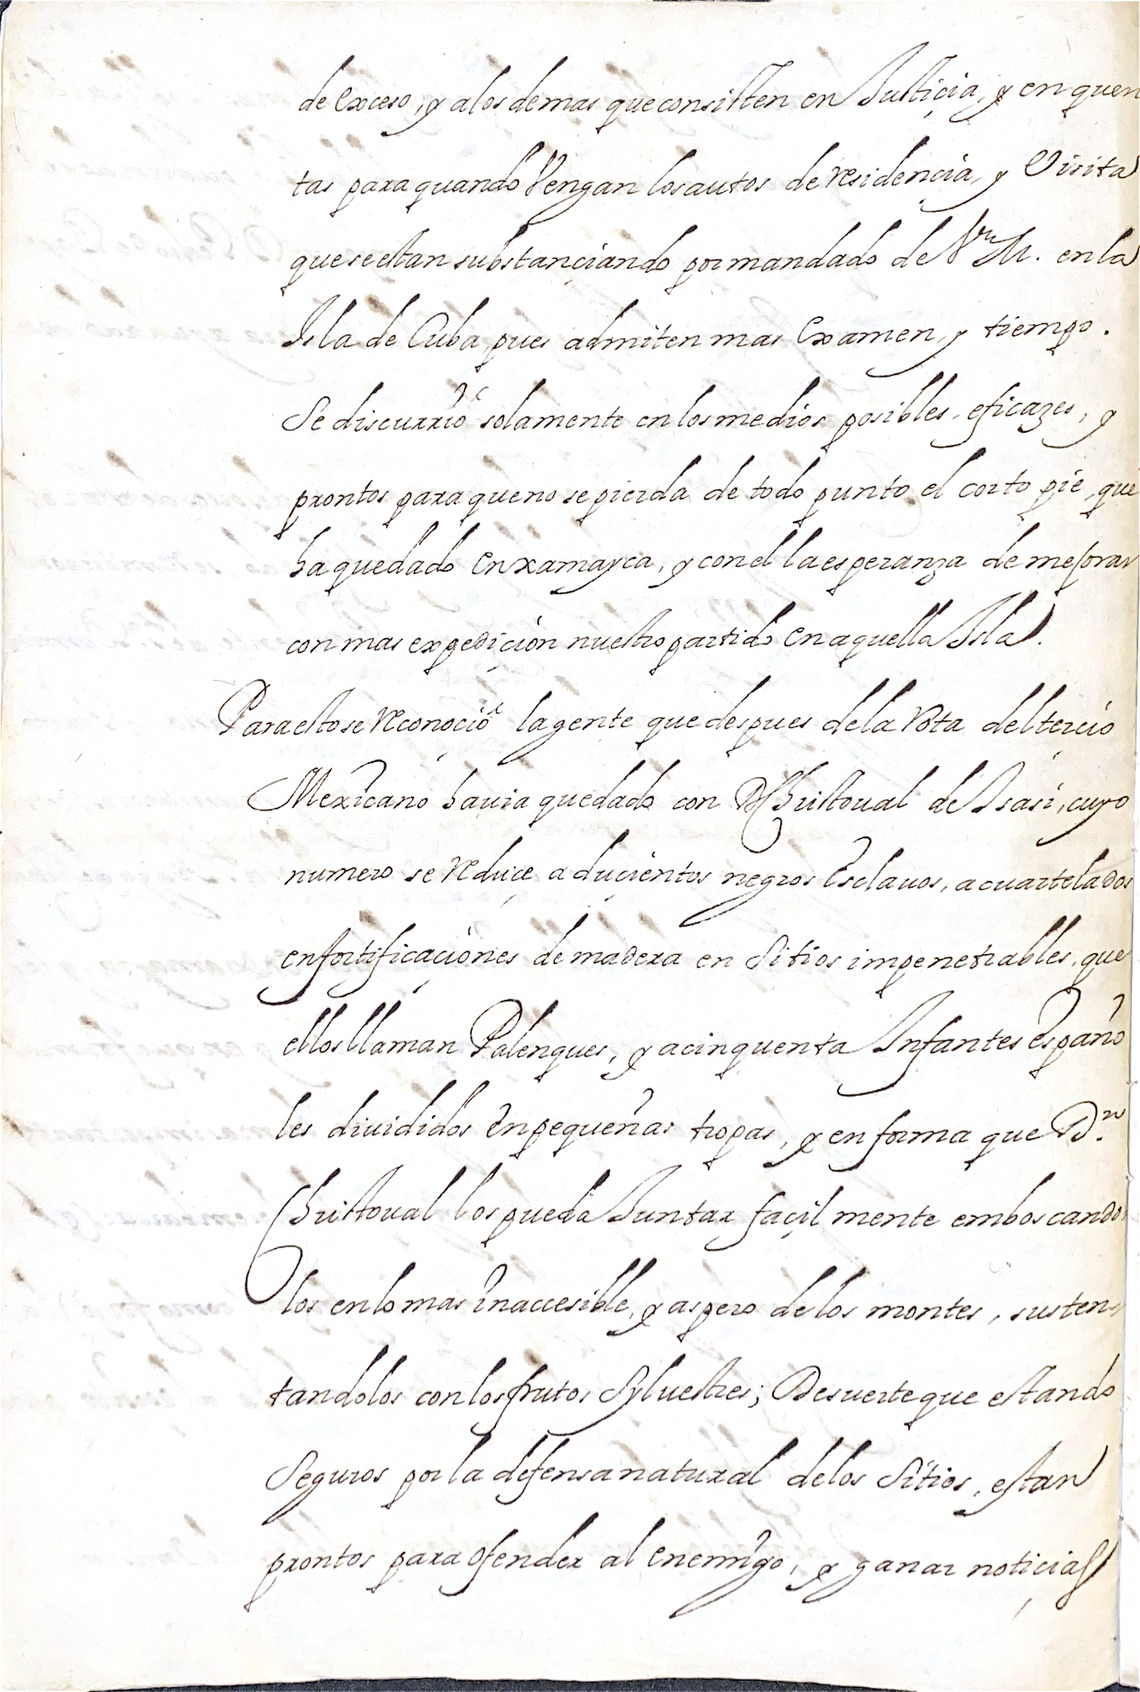 de exceso, y a los demas que consisten en Justiçia, y en quen
tas para quando Vengan los autos de residençia, y Visita
que se estan substançiando por mandado de V.ra M. en la
Isla de Cuba, pues admiten mas Examen, y tiempo.
Se discurriò solamente en los medios posibles, eficazes, y
prontos para que no se pierda de todo punto el corto pie, que
ha quedado en xamayca, y con el la esperanza de mejorar
con mas expediçion nuestro partido en aquella Isla.
Para esto se reconoçiò la gente que despues de la Rota del terçio
Mexicano hauia quedado con D. Christoual de Isasi, cuyo
numero se reduçe a duçientos negros Esclauos, acuartelados
en fortificaçiones de madera en Sitios impenetrables, que
ellos llaman Palenques, y a cinquenta Infantes españo
les diuididos en pequeñas tropas, y en forma que D.n
Christoual los pueda Juntar façilmente emboscando
los en lo mas inaccesible, y aspero de los montes, susten
tandolos con los frutos Syluestres; De suerte que estando
Seguros por la defensa natural de los Sitios, estan
prontos para ofender al enemigo, y ganar notiçias